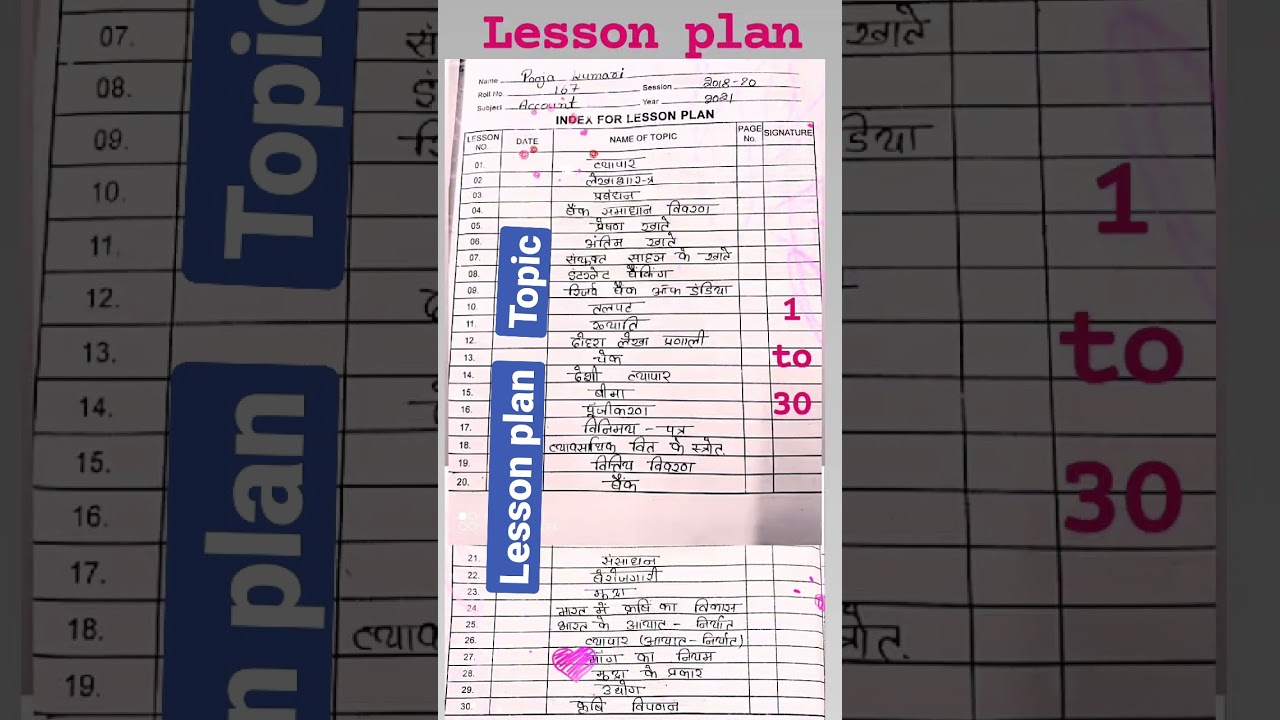 Lesson plan
Name Pooja kumari
Roll No. 167 Session 2018-20
Subject Account Year 2021
INDEX FOR LESSON PLAN
LESSON NO. DATE NAME OF TOPIC PAGE No. SIGNATURE
01. व्यापार
02 लेखाशास्त्र
03 प्रबंधन
04. बैंक समाधान विवरण
05. प्रेषण खाते
06. अंतिम खाते
07. संयुक्त साहस के खाते
08. इंटरनेट बैंकिंग
09. रिजर्व बैंक ऑफ इंडिया
10. तलपट
11. ख्याति
12. दोहरा लेखा प्रणाली
13. चेक
14. देशी व्यापार
15. बीमा
16. पूंजीकरण
17. विनिमय - पत्र
18. व्यावसायिक वित के स्त्रोत.
19. वित्तिय विवरण
20. बैंक
21. संसाधन
22. बेरोजगारी
23. मुद्रा
24. भारत में कृषि का विकास
25. भारत के आयात - निर्यात
26. व्यापार (आयात - निर्यात)
27. मांग का नियम
28. मुद्रा के प्रकार
29. उद्योग
30. कृषि विपणन
Topic
Lesson plan
1
to
30
07.
08.
09.
10.
11.
12.
13.
14.
15.
16.
17.
18.
19.
Topic
n plan
खाते
डिया
1
to
30